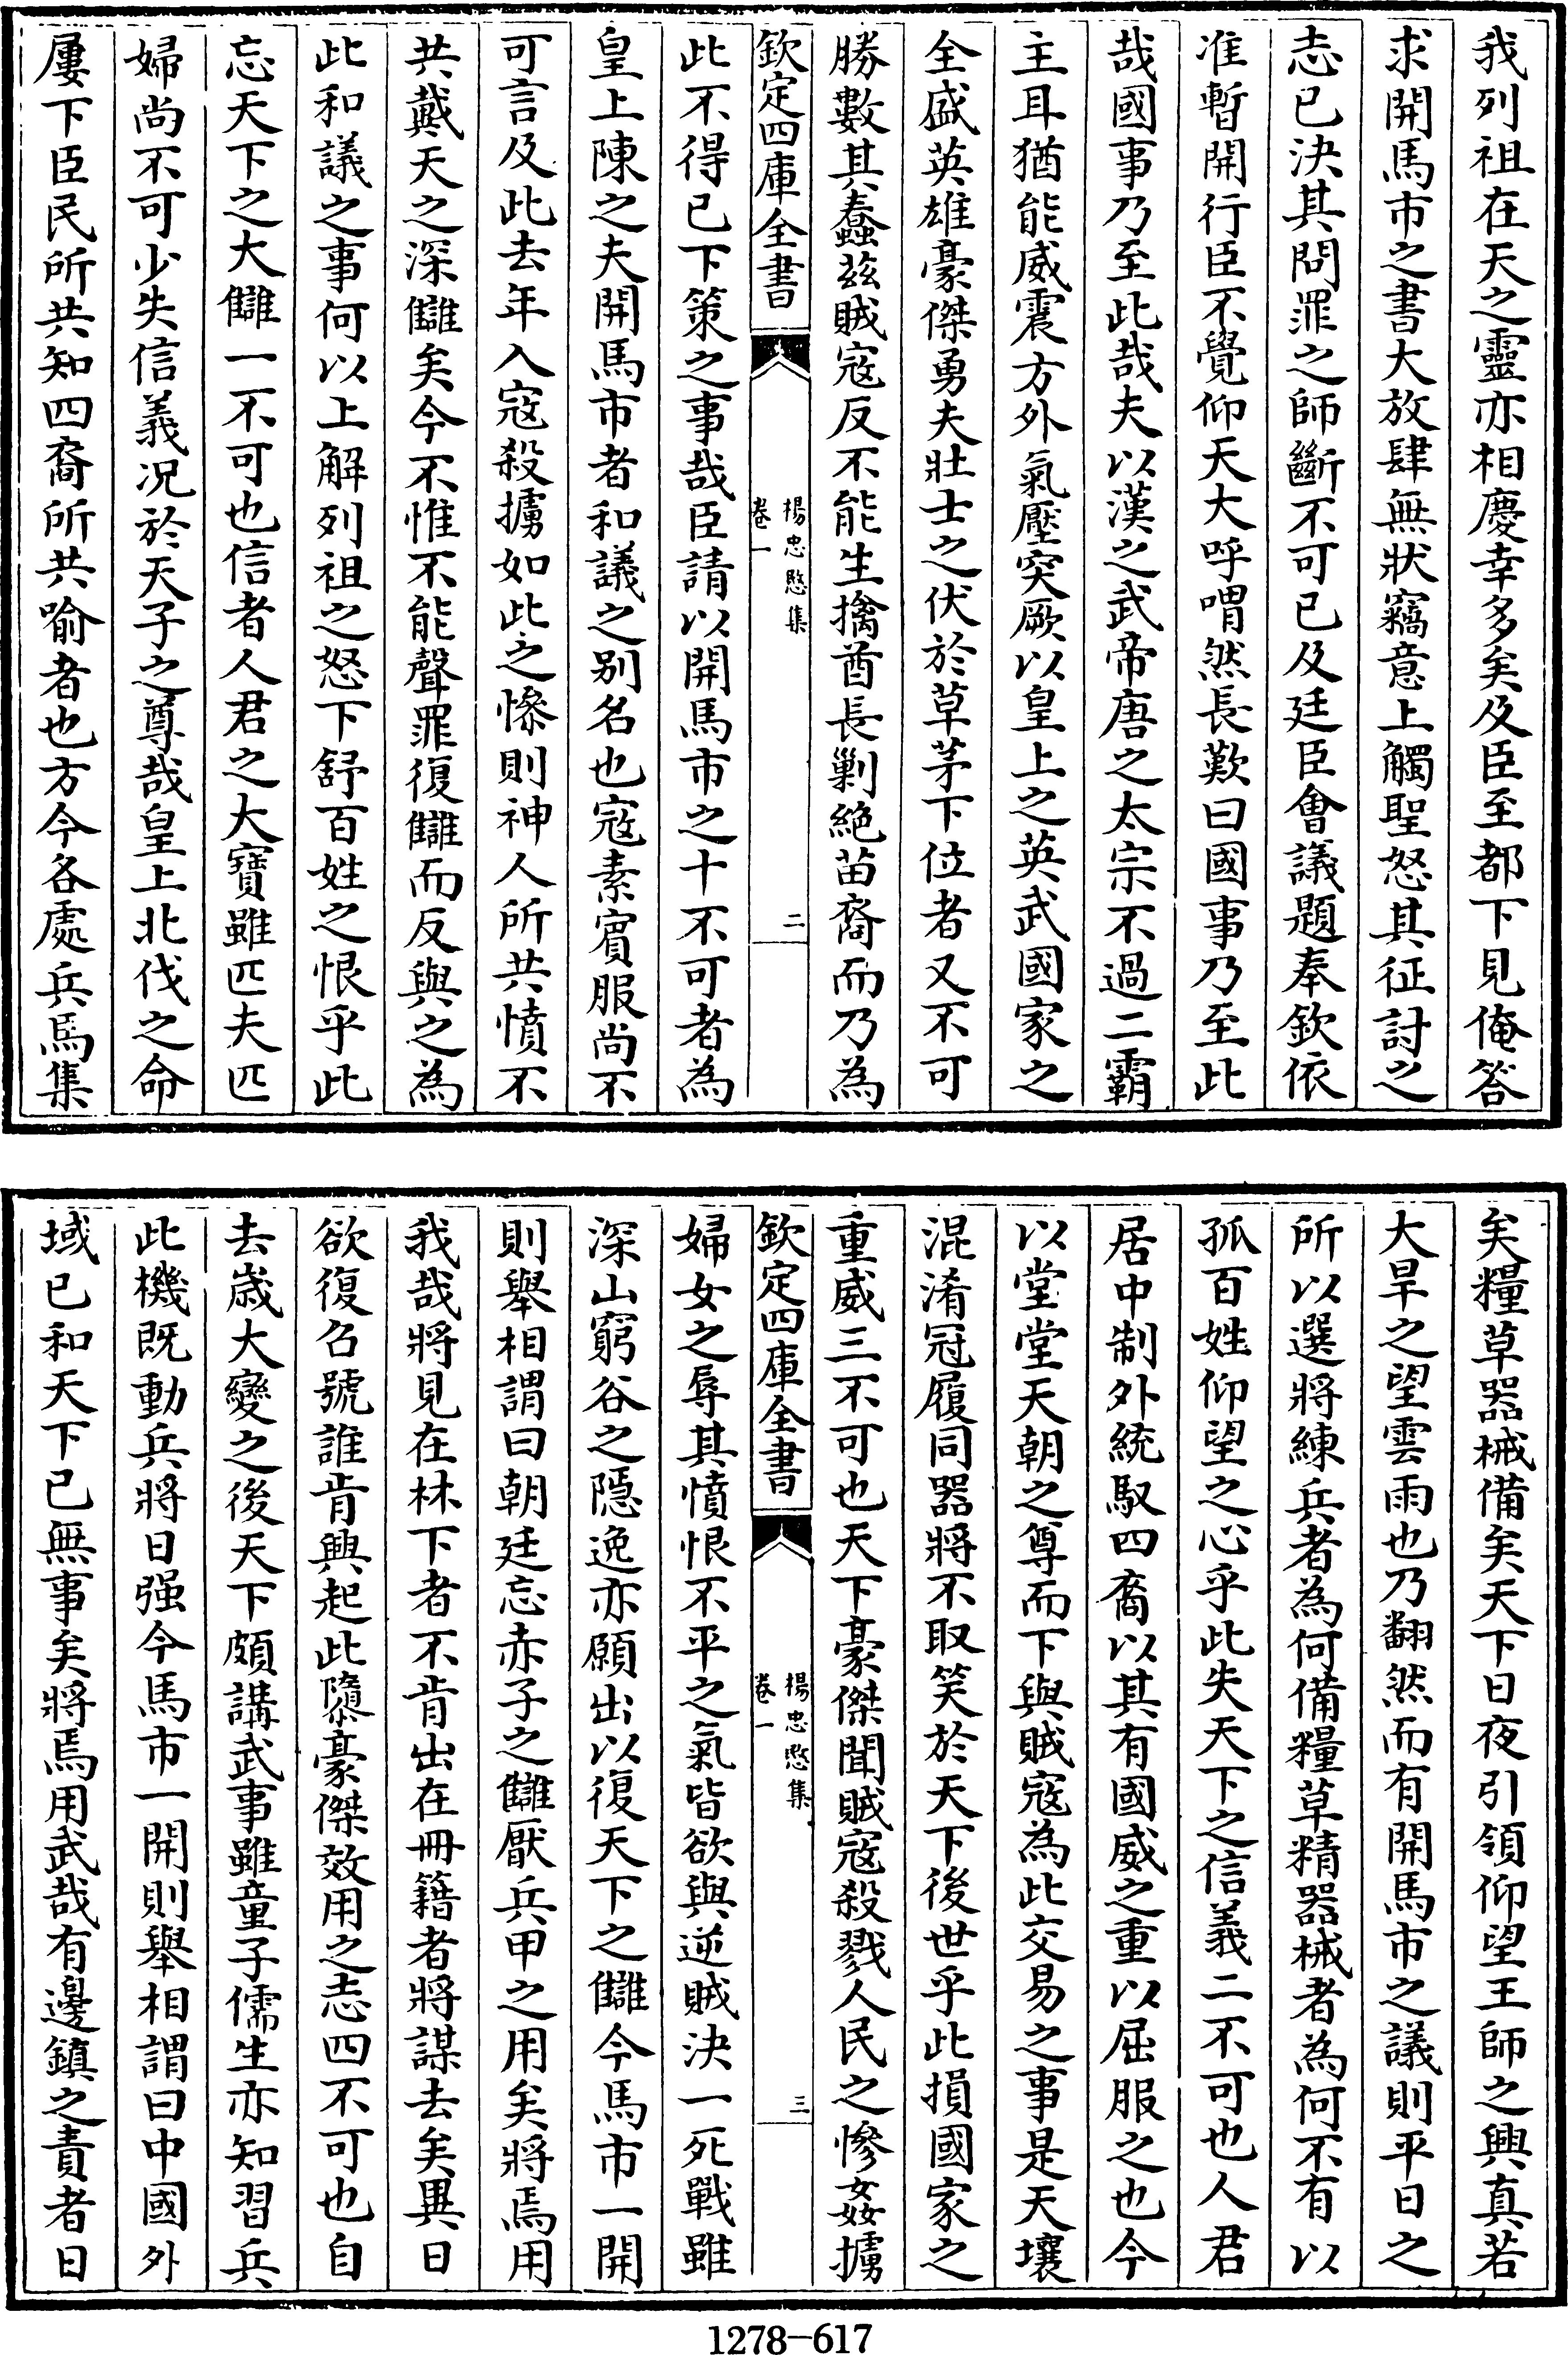 我列祖在天之靈亦相慶幸多矣及臣至都下見俺答
求開馬市之書大放肆無狀竊意上觸聖怒其征討之
志已決其問罪之師斷不可已及廷臣會議題奉欽依
准暫開行臣不覺仰天大呼喟然長歎曰國事乃至此
哉國事乃至此哉夫以漢之武帝唐之太宗不過二霸
主耳猶能威震方外氣壓突厥以皇上之英武國家之
全盛英雄豪傑勇夫壯士之伏於草茅下位者又不可
勝數其蠢茲賊寇反不能生擒酋長剿絕苗裔而乃為
欽定四庫全書
楊忠愍集
卷一
二
此不得已下策之事哉臣請以開馬市之十不可者為
皇上陳之夫開馬市者和議之别名也寇素賓服尚不
可言及此去年入寇殺擄如此之慘則神人所共憤不
共戴天之深讎矣今不惟不能聲罪復讎而反與之為
此和議之事何以上解列祖之怒下舒百姓之恨乎此
忘天下之大讎一不可也信者人君之大寶雖匹夫匹
婦尚不可少失信義况於天子之尊哉皇上北伐之命
屢下臣民所共知四裔所共喻者也方今各處兵馬集
矣糧草器械備矣天下日夜引領仰望王師之興真若
大旱之望雲雨也乃翻然而有開馬市之議則平日之
所以選將練兵者為何備糧草精器械者為何不有以
孤百姓仰望之心乎此失天下之信義二不可也人君
居中制外統馭四裔以其有國威之重以屈服之也今
以堂堂天朝之尊而下與賊寇為此交易之事是天壤
混淆冠履同器將不取笑於天下後世乎此損國家之
重威三不可也天下豪傑聞賊寇殺戮人民之慘姦擄
欽定四庫全書
楊忠愍集
卷一
三
婦女之辱其憤恨不平之氣皆欲與逆賊決一死戰雖
深山窮谷之隱逸亦願出以復天下之讎今馬市一開
則舉相謂曰朝廷忘赤子之讎厭兵甲之用矣將焉用
我哉將見在林下者不肯出在冊籍者將謀去矣異日
欲復召號誰肯興起此隳豪傑效用之志四不可也自
去歲大變之後天下頗講武事雖童子儒生亦知習兵
此機既動兵將日强今馬市一開則舉相謂曰中國外
域已和天下已無事矣將焉用武哉有邊鎮之責者日
1278-617